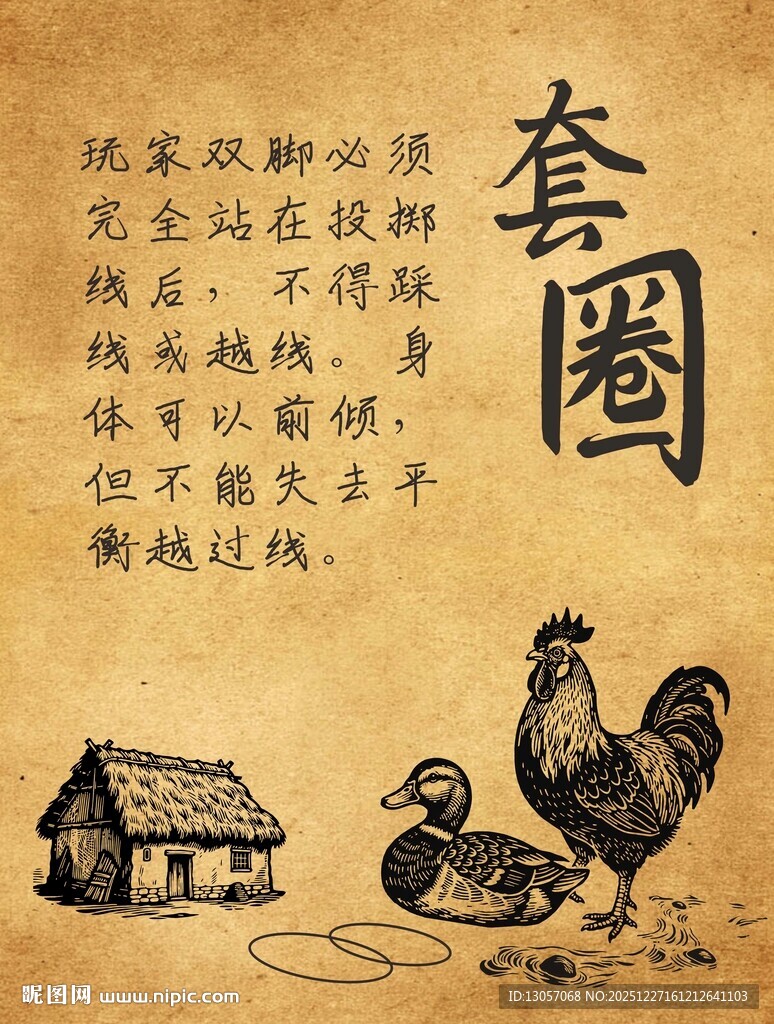 套圈
玩家双脚必须
完全站在投掷
线后，不得踩
线或越线。身
体可以前倾，
但不能失去平
衡越过线。
昵图网 www.nipic.com
ID:13057068 NO:20251227161212641103